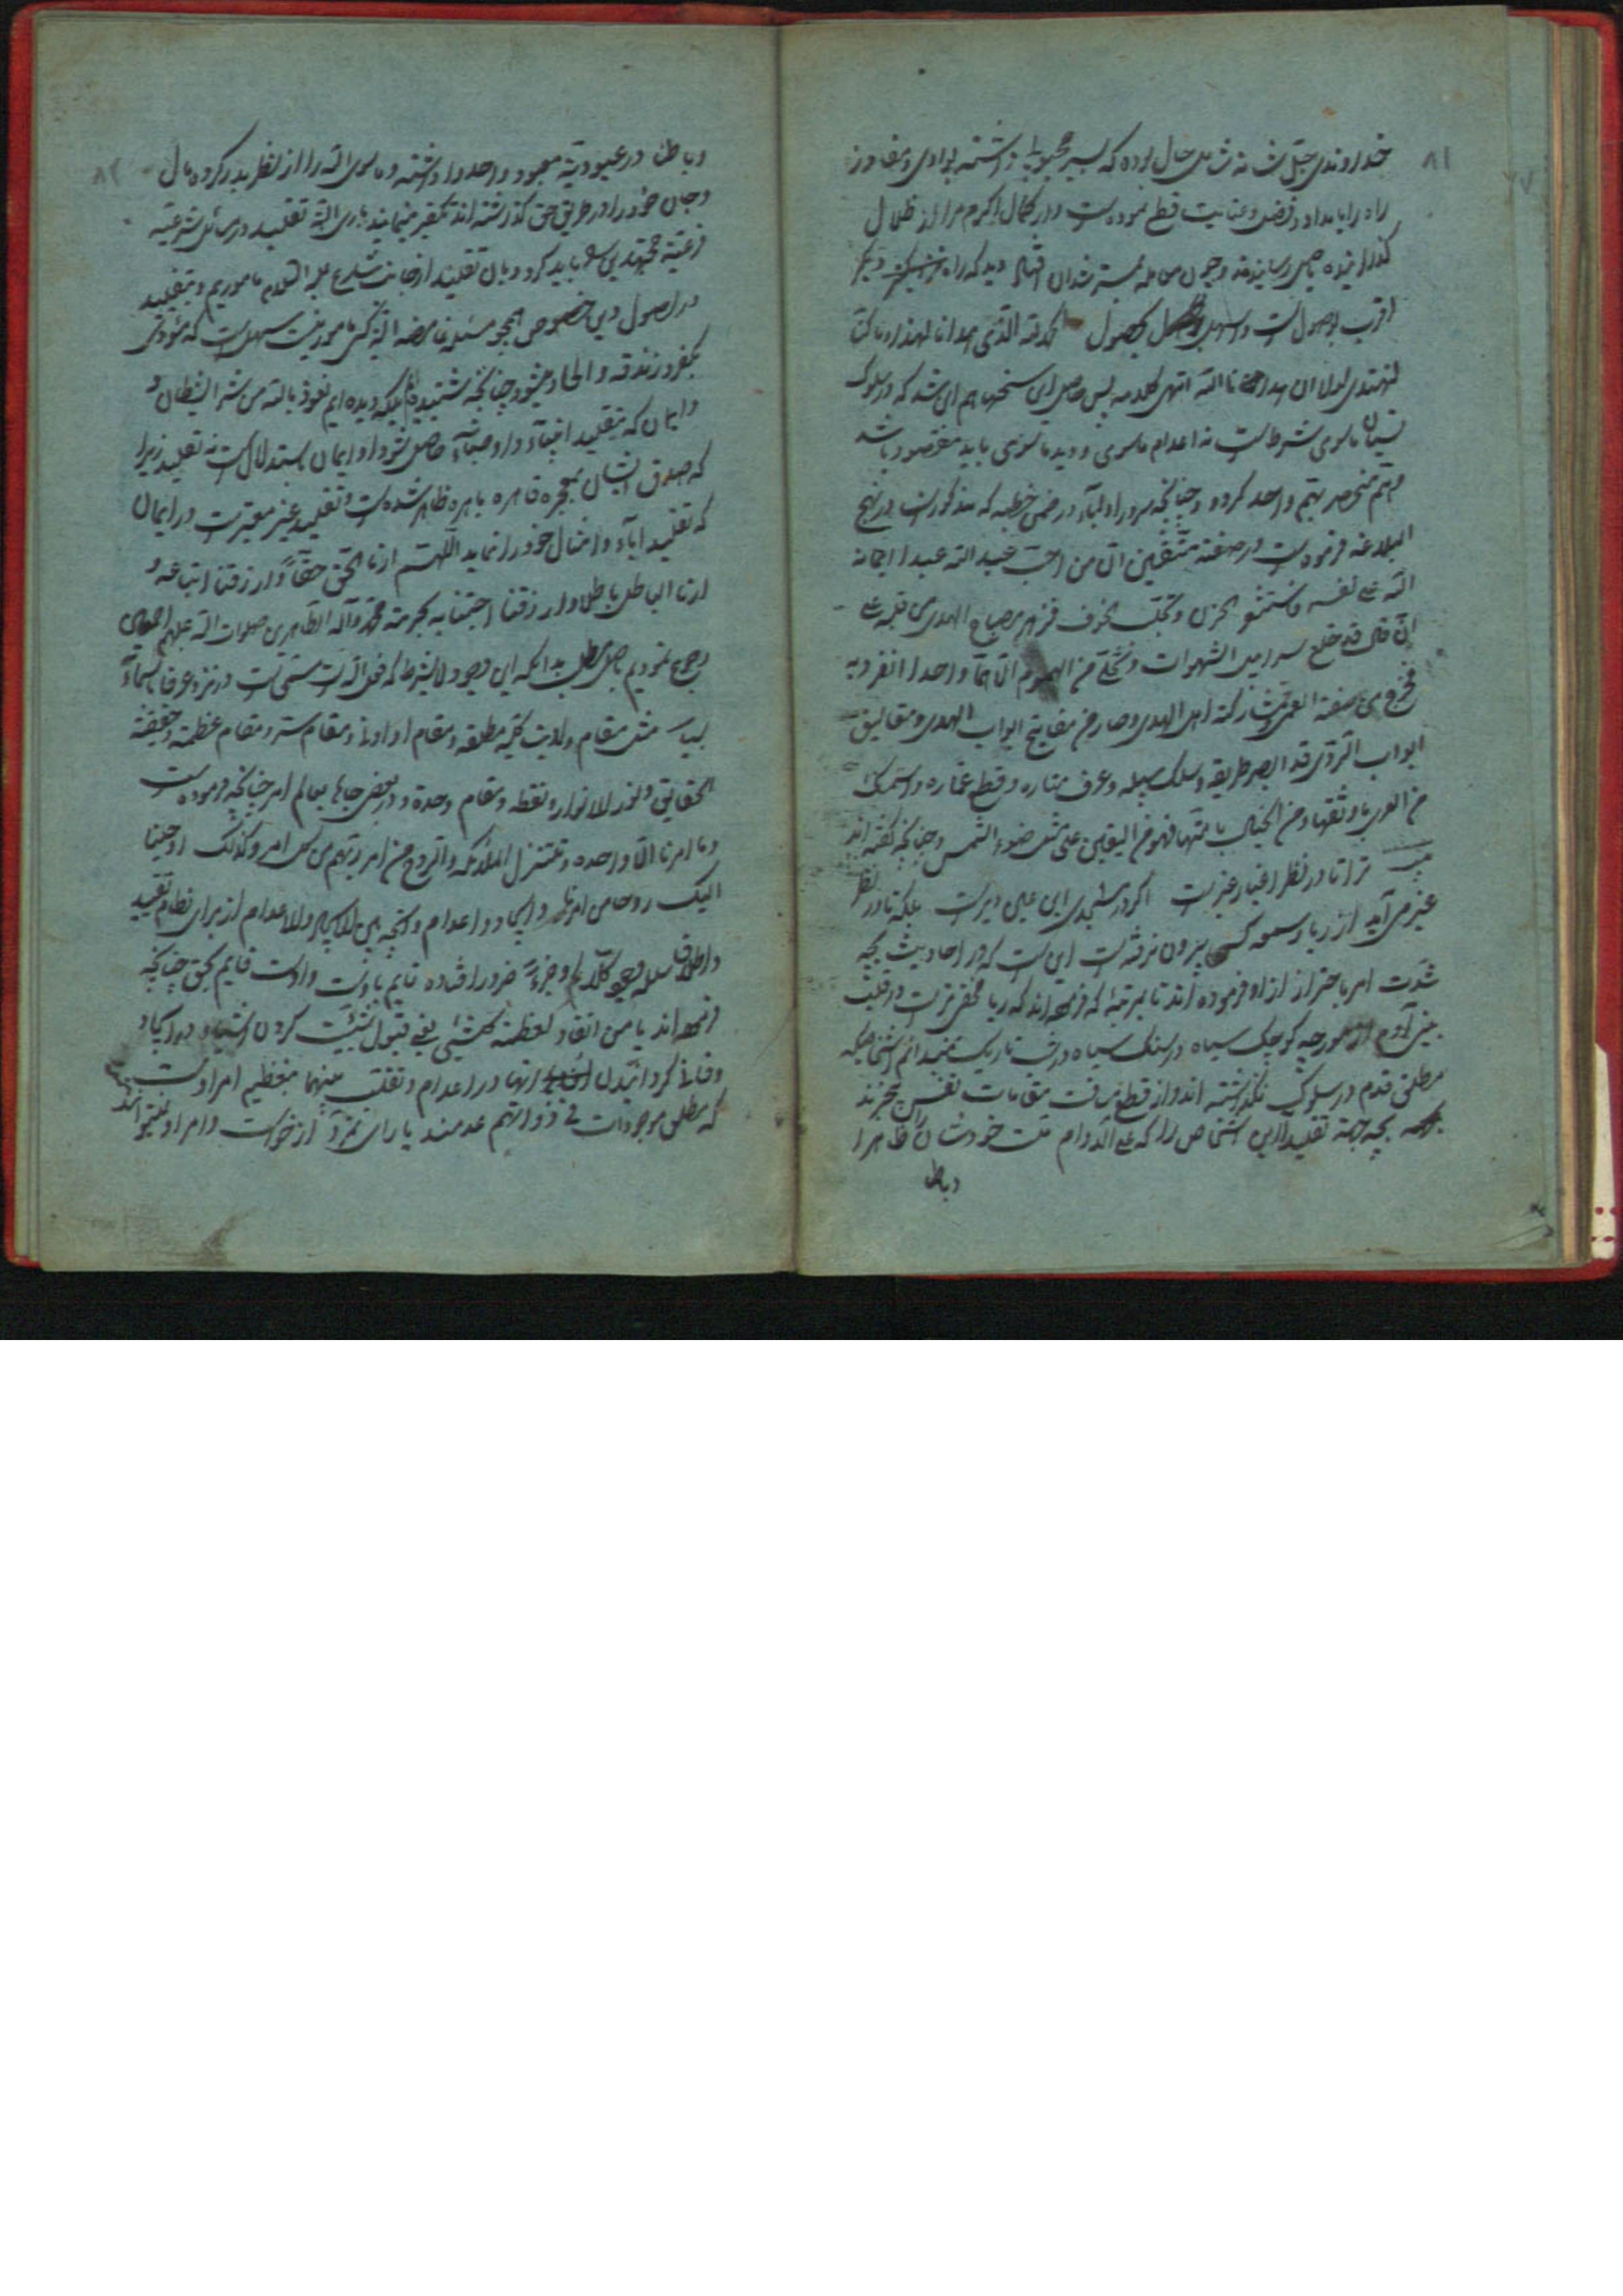 ۸۱
خداوندی جل شانه شامل حال بوده که بسیر محبوبی داشته بوادی و مفاوز
راه را بامداد و فضل و عنایت قطع نموده است و از کمال کرم مرا از ظلال
گذرانیده باصل رسانیدند و چون من مله دید که راه دیگر
اقرب بوصول است و اسهل بحصول الحمد لله الذی هدانا لهذا و ما کنا
لنهتدی لولا ان هدانا الله انتهی کلامه پس حاصل این سخنها هم این شد که در سلوک
نسیان ماسوی شرط است نه اعدام ماسوی و دید ماسوی باید مقصود باشد
و هم منحصر بهم واحد کردد و چنانچه سرور اولیاء در ضمن خطبه که مذکور است در نهج
البلاغه فرموده است در صفة متقین ان من احب عباد الله عبدا اعانه
الله علی نفسه فاستشعر الحزن و تجلبب الخوف فزهر مصباح الهدی فی قلبه
الی ان قال قد خلع سرابیل الشهوات و تخلی من الهموم الا هما واحدا انفرد به
فخرج من صفة العمی و مشارکة اهل الهوی و صار من مفاتیح ابواب الهدی و مغالیق
ابواب الردی قد ابصر طریقه و سلک سبیله و عرف مناره و قطع غماره و استمسک
من العری باوثقها و من الحبال بامتنها فهو من الیقین علی مثل ضوء الشمس و چنانچه کفته اند
بیت ترا تا در نظر اغیار غیر است اکر در مسجدی این عین دیر است بلکه تا در نظر
غیر می آید از ریا و سمعه کسی بیرون نرفته است این است که در احادیث بجه
شدت امر باحتراز از او فرموده اند تا بمرتبه که فرموده اند که ریا مخفی تر است در قلب
بنی آدم از مورچه کوچک سیاه در سنک سیاه در شب تاریک نمیدانم اشخاصیکه
مطلق قدم در سلوک نگذاشته اند و از قطع مسافت مقامات نفس بیخبرند
بچه جهة تقلید این اشخاص را که علی الدوام خودشان را ظاهرا
و باطنا
۸۲
و باطنا در عبودیة معبود واحد وا داشته و ماسوی الله را از نظر بدر کرده مال
و جان خود را در طریق حق گذاشته اند تکفیر مینمایند باری البته تقلید در مسائل شرعیه
فرعیه مجتهدین را باید کرد و بان تقلید از جانب شارع علیه السلام ماموریم و بتقلید
در اصول دین خصوص همچو مسئله غامضه البته کسی مامور نیست سهل است که مودی
بکفر و زندقه و الحاد میشود چنانچه شنیده بلکه دیده ایم نعوذ بالله من شر الشیطان و
ایمان که بتقلید انبیاء و اوصیاء حاصل شود او ایمان باستدلال است نه تقلید زیرا
که صدق ایشان بمعجزه قاهره باهره ظاهر شده است و تقلید غیر معتبر است در ایمان
که تقلید آباء و امثال خود را نماید اللهم ارنا الحق حقا و ارزقنا اتباعه و
ارنا الباطل باطلا و ارزقنا اجتنابه بحرمة محمد و آله الطاهرین صلوات الله علیهم اجمعین
رجوع نمودیم باصل مطلب بدانکه این وجود لابشرط که فعل الله است مسمی است در نزد عرفا باسماء
بسیار مثل مقام ولایت کلیه مطلقه و مقام او ادنی و مقام ستر و مقام عظمة و حقیقة
الحقایق و نور الانوار و نقطه و مقام وحدة و در بعضی جاها بعالم امر چنانچه فرموده است
و ما امرنا الا واحدة و تتنزل الملائکه و الروح من امر ربهم من کل امر و کذلک اوحینا
الیک روحا من امرنا و ایجاد و اعدام و آنچه بین الایجاد و الاعدام از برای نظام تقیید
و اطلاق سلسله وجود کلا و جزءا ضرور افتاده قایم باوست و اوست قایم بحق چنانچه
فرموده اند یا من انقاد لعظمته کل شیئی یعنی قبول شیئیت کردن اشیاء در ایجاد
و فانی کردانیدن انها در اعدام و تقلب منهما بتعظیم امر اوست
که مطلق موجودات فی ذواتهم عدمند یا رای تمرد از خواست و امر او نمیتوانند